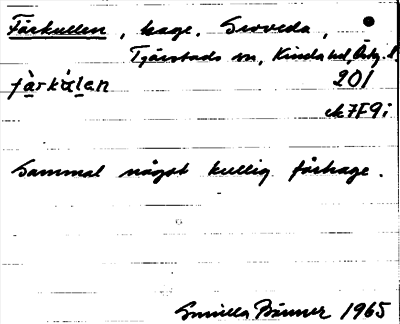 Fårkullen, hage. Sroveda,
Tjärstads sn, Kinda hd, Östg. l.
fårkúlen 201
M7F9i
Gammal något kullig fårhage.
Gunilla Bänner 1965